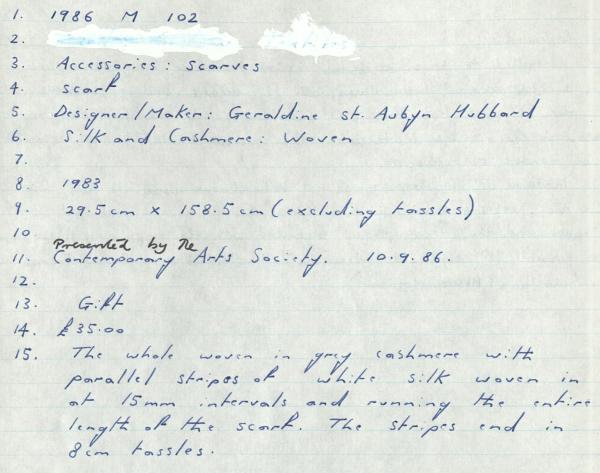 1. 1986 M 102
2.
3. Accessories: scarves
4. scarf
5. Designer/Maker: Geraldine st. Aubyn Hubbard
6. Silk and Cashmere: Woven
7.
8. 1983
9. 29.5cm x 158.5cm (excluding tassles)
10
Presented by The
11. Contemporary Arts Society. 10.9.86.
12.
13. Gift
14. £35.00
15. The whole woven in grey cashmere with
parallel stripes of white silk woven in
at 15mm intervals and running the entire
length of the scarf. The stripes end in
8cm tassles.